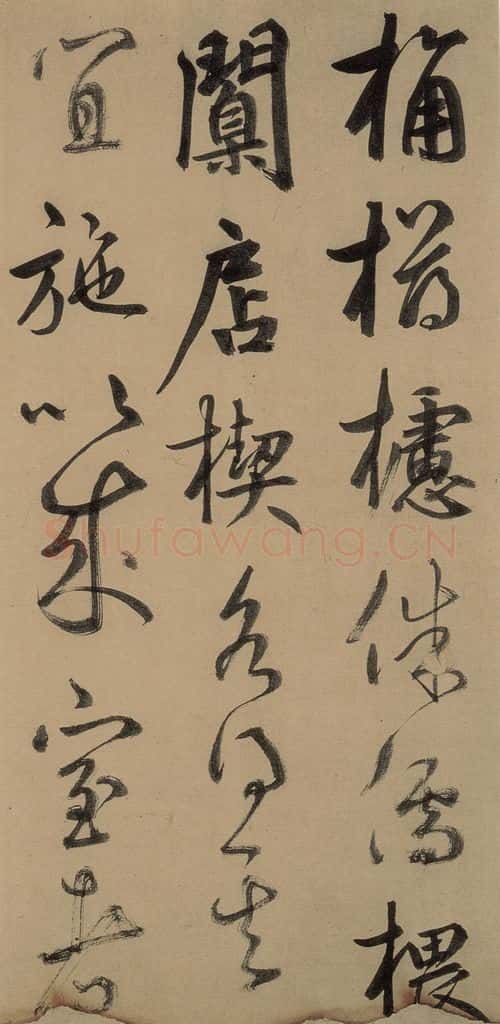 桷欂櫨侏儒椳
闑扂楔各得其
宜施以成室者
Shufawang.CN